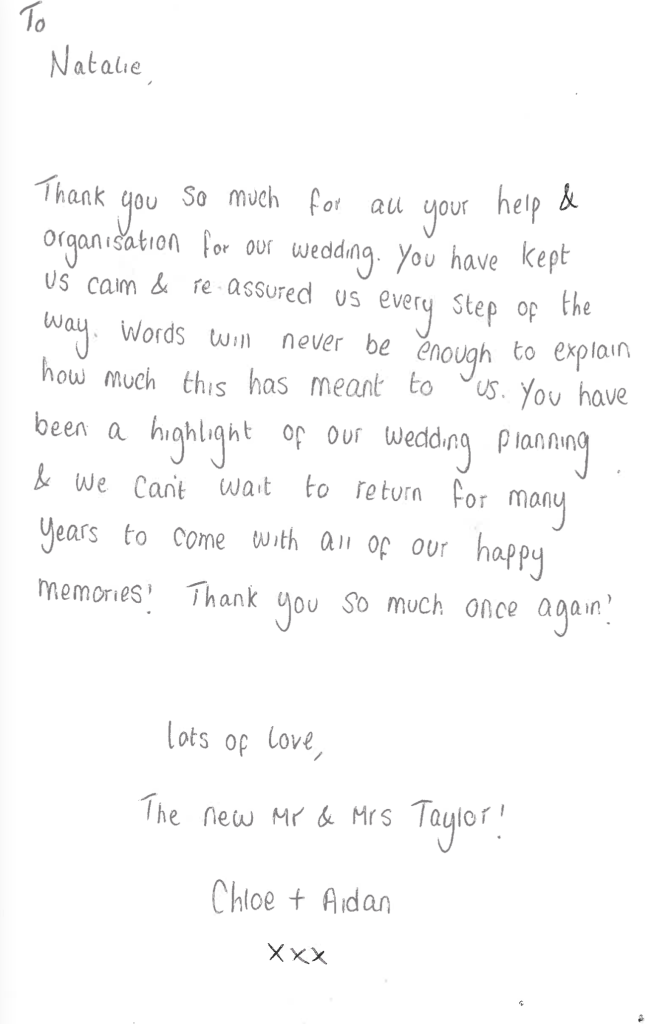 To
Natalie,
Thank you so much for all your help &
organisation for our wedding. You have kept
us calm & re-assured us every step of the
way. Words will never be enough to explain
how much this has meant to us. You have
been a highlight of our wedding planning
& we can't wait to return for many
years to come with all of our happy
memories! Thank you so much once again!
Lots of love,
The new Mr & Mrs Taylor!
Chloe + Aidan
xxx